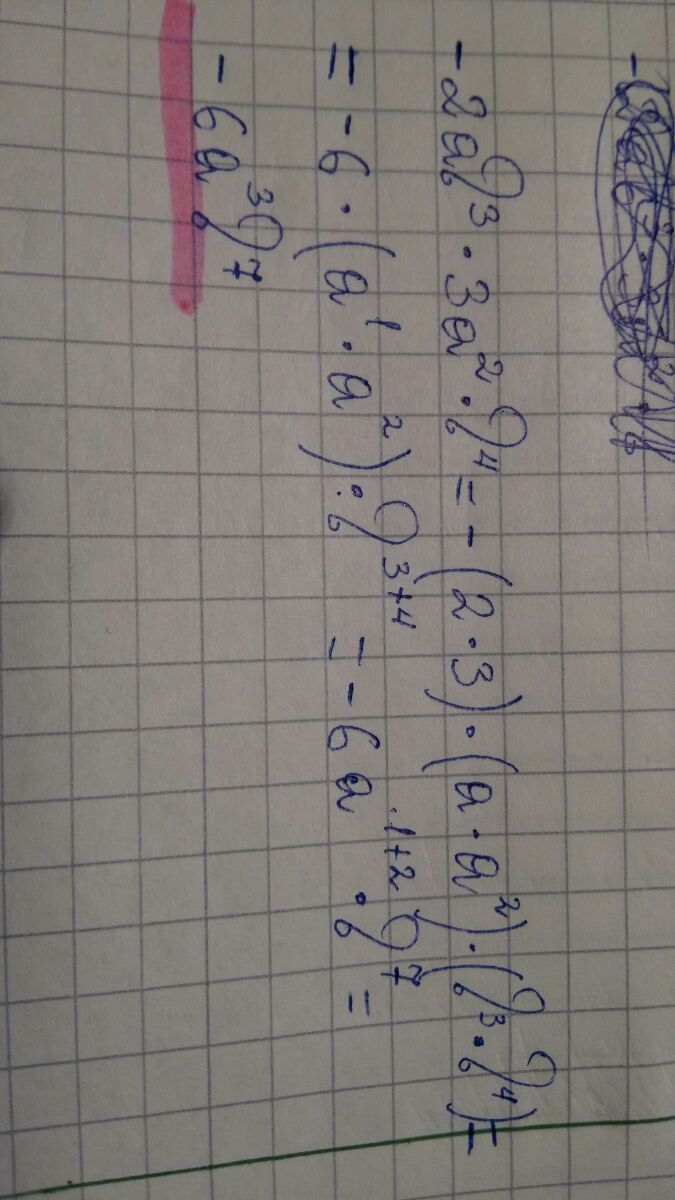 -2ab³·3a²·b⁴=-(2·3)·(a·a²)·(b³·b⁴)=
=-6·(a¹·a²)·b³⁺⁴=-6a¹⁺²·b⁷=
-6a³b⁷